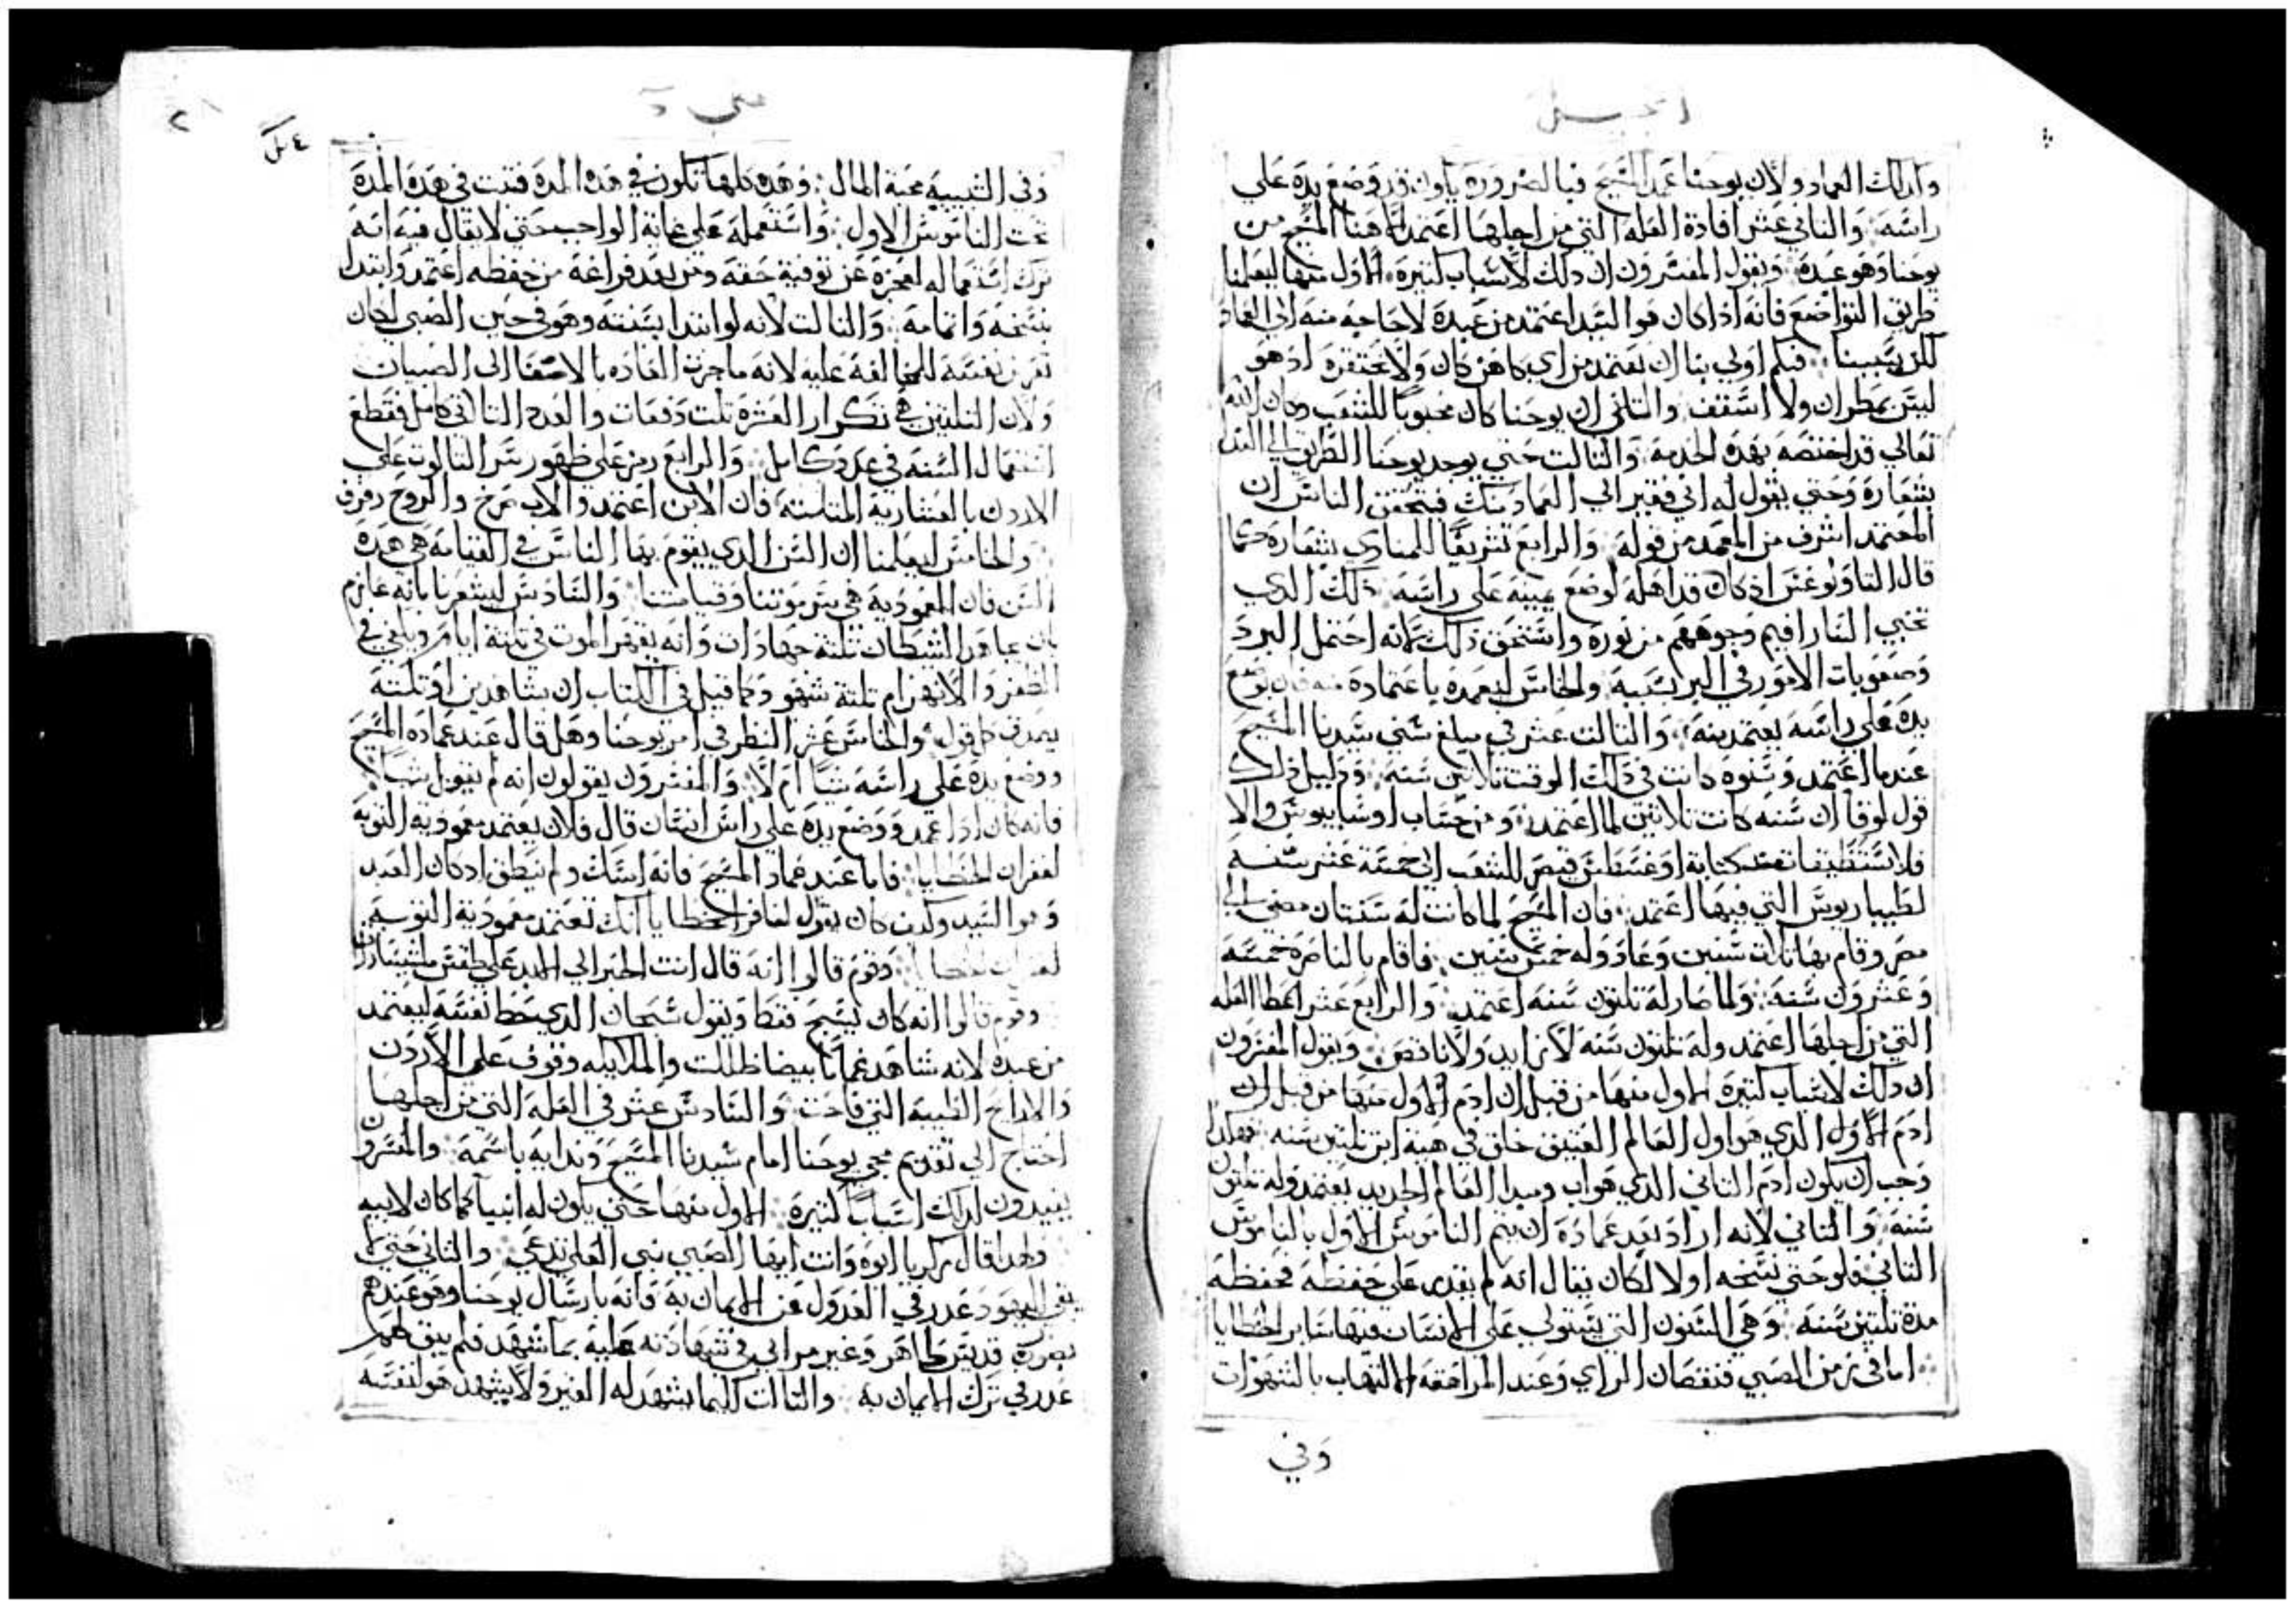 انجيل
وادلك العماد ولان يوحنا عمد المسيح فبالضروره يكون قد وضع يده علي
راسه والثاني عشر افادة العله التي من اجلها اعتمد الاهنا المسيح من
يوحنا وهو عبده ويقول المفسرون ان دلك لاسباب كتيره الاول منها ليعلمنا
طريق التواضع فانه اذا كان هو السيد اعتمد من عبده لا حاجه منه الي العماد
لكن بسببنا فكم اولي بنا ان نعتمد من اي كاهن كان ولا نحتقره اد هو
ليس بمطران ولا اسقف والثاني ان يوحنا كان محبوبا للشعب وكان الله
تعالي قد اختصه بهده الخدمه والتالت حتي يوجد يوحنا الطريق الي الندا
بشعاره وحتي يقول له اني فقير الي العماد منك فيتحقق الناس ان
المعتمد اشرف من المعمد من قوله والرابع تشريفا للمنادي بشعاره كما
قال التاولوغس اد كان قد اهله لوضع يمينه علي راسه دلك الدي
تخبي السارافيم وجوههم من نوره واستحق دلك لانه احتمل البرد
وصعوبات الامور في البر بسببه والخامس ليعمده باعتماده منه فان بوضع
يده علي راسه يعتمد منه والتالت عشر في مبلغ سني سيدنا المسيح
عندما اعتمد وسنوه كانت في دلك الوقت تلاتين سنه ودليل دلك
قول لوقا ان سنه كانت تلاتين لما اعتمد ومن حساب اوسابيوس والا
فلانستطيفا تعد كتابة اوغسطس قيصر للشعب الي خمسة عشر سنه
لطيباريوس التي فيها اعتمد فان المسيح لما كانت له سنتان مضي الي
مصر وقام بها تلات سنين وعاد وله خمس سنين فاقام بالناصره خمسه
وعشرون سنه ولما صار له تلتون سنه اعتمد والرابع عشر اعطا العله
التي من اجلها اعتمد وله تلتون سنه لا زايد ولا ناقص ويقول المفسرون
ان دلك لاسباب كتيره الاول منها من قبل ان ادم الاول منها من قبل ان
ادم الاول الدي هو اول العالم العتيق خلق في هيئة ابن تلتين سنه فهكدا
وجب ان يكون ادم الثاني الدي هو اب ومبدا العالم الجديد يعتمد وله تلتون
سنه والتاني لانه اراد بعد عماده ان يتم الناموس الاول بالناموس
التاني فلو حتي نسخه اولا لكان يقال انه لم يقدر علي حفظه فحفظه
مدة تلتين سنه وهي السنون التي يستولي علي الانسان فيها ساير الخطايا
اما في زمن الصبي فنقصان الراي وعند المراهقه الالتهاب بالشهوات
وفي
متي
٤ كل
وفي الشبيبه محبة المال وهده كلها تكون في هده المده فتبت في هده المده
تحت الناموس الاول واستعمله علي غاية الواجب حتي لا يقال فيه انه
ترك استعماله لعجزه عن توفية حقه ومن بعد فراغه من حفظه اعتمد وابتدا
بنسخه واتمامه والتالت لانه لو ابتدا بسنته وهو في حين الصبي لكان
تعرض نفسه للمخالفه عليه لانه ما جرت العاده بالاصغا الي الصبيان
ولان التلتين هي تكرار العشره تلت دفعات والعدد التالتي كامل فقطع
استعمال السنه في عدد كامل والرابع رمز علي ظهور سر التالوت علي
الاردن بالعشاريه المتلته فان الابن اعتمد والاب صرخ والروح رفرف
والخامس ليعلمنا ان السن الدي يقوم بها الناس في القيامه هي هده
السن فان المعموديه هي سر موتنا وقيامتنا والسادس ليشعرنا بانه عازم
بان يجاهد الشيطان تلتة جهادات وانه يقهر الموت في تلتة ايام وياتي في
الظفر والانهزام تلتة شهود وكما قيل في الكتاب ان بشاهدين او تلته
يصدق كل قول والخامس عشر النظر في امر يوحنا وهل قال عند عماده المسيح
ووضع يده علي راسه شيا ام لا والمفسرون يقولون انه لم يقول شيا
فانه كان ادا عمد ووضع يده علي راس انسان قال فلان يعتمد معمودية التوبه
لغفران الخطايا فاما عند عماد المسيح فانه اسكت ولم ينطق اد كان العبد
وهو السيد وكيف كان يقول لغافر الخطايا انك تعتمد معمودية التوبه
لغفران الخطايا وقوم قالوا انه قال انت الحبر الي الابد علي طقس ملشيسادق
وقوم قالوا انه كان يسبح فقط ويقول سبحان الدي حط نفسه ليعتمد
من عبده لانه شاهد غماما بيضا ظللت والملايكه وقوف علي الاردن
والارايح الطيبه التي فاحت والسادس عشر في العله التي من اجلها
احتاج الي تقديم مجي يوحنا امام سيدنا المسيح وندايه باسمه والمفسرون
يفيدون لدلك اسبابا كتيره الاول منها حتي يكون له انبيا كما كان لابيه
ولهدا قال زكريا ابوه وانت ايها الصبي نبي العلي تدعي والتاني حتي لا
يبقي لليهود عدر في العدول عن الايمان به فانه بارسال يوحنا وهو عندهم
بصورة قديس طاهر وغير مرايي في شهادته عليه بما شهد فلم يبق لهم
عدر في ترك الايمان به والتالت كيما يشهد له الغير ولا يشهد هو لنفسه